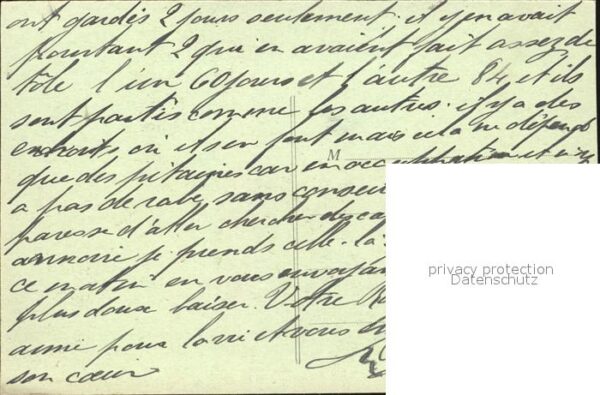 ont gardés 2 jours seulement. il y en avait
pourtant 2 qui en avaient fait assez de
tôle l'un 60 jours et l'autre 84, et ils
sont partis comme les autres. il y a des
endroits où ils en font mais cela ne dépend
que des pitaines car en
M
a pas de rabe, sans
paresse d'aller chercher des
armoire je prends celle-là
ce matin en vous envoyan
plus doux baiser. Votre
aimé pour la vie et vous
son cœur
privacy protection
Datenschutz